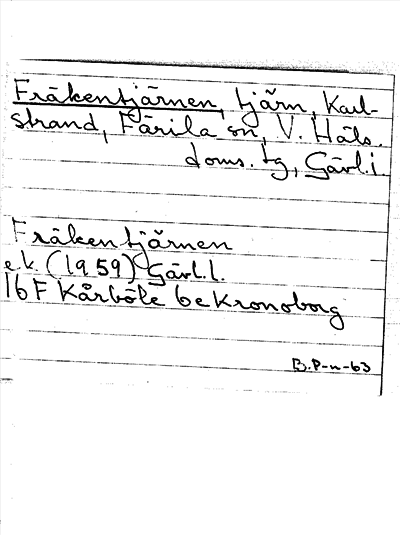 Fräkentjärnen, tjärn, Karl-
strand, Färila sn, V. Häls.
doms. tg, Gävl.l.
Fräkentjärnen
e.k. (1959) Gävl.l.
16F Kårböle 6e Kronoborg
B.P-n-63